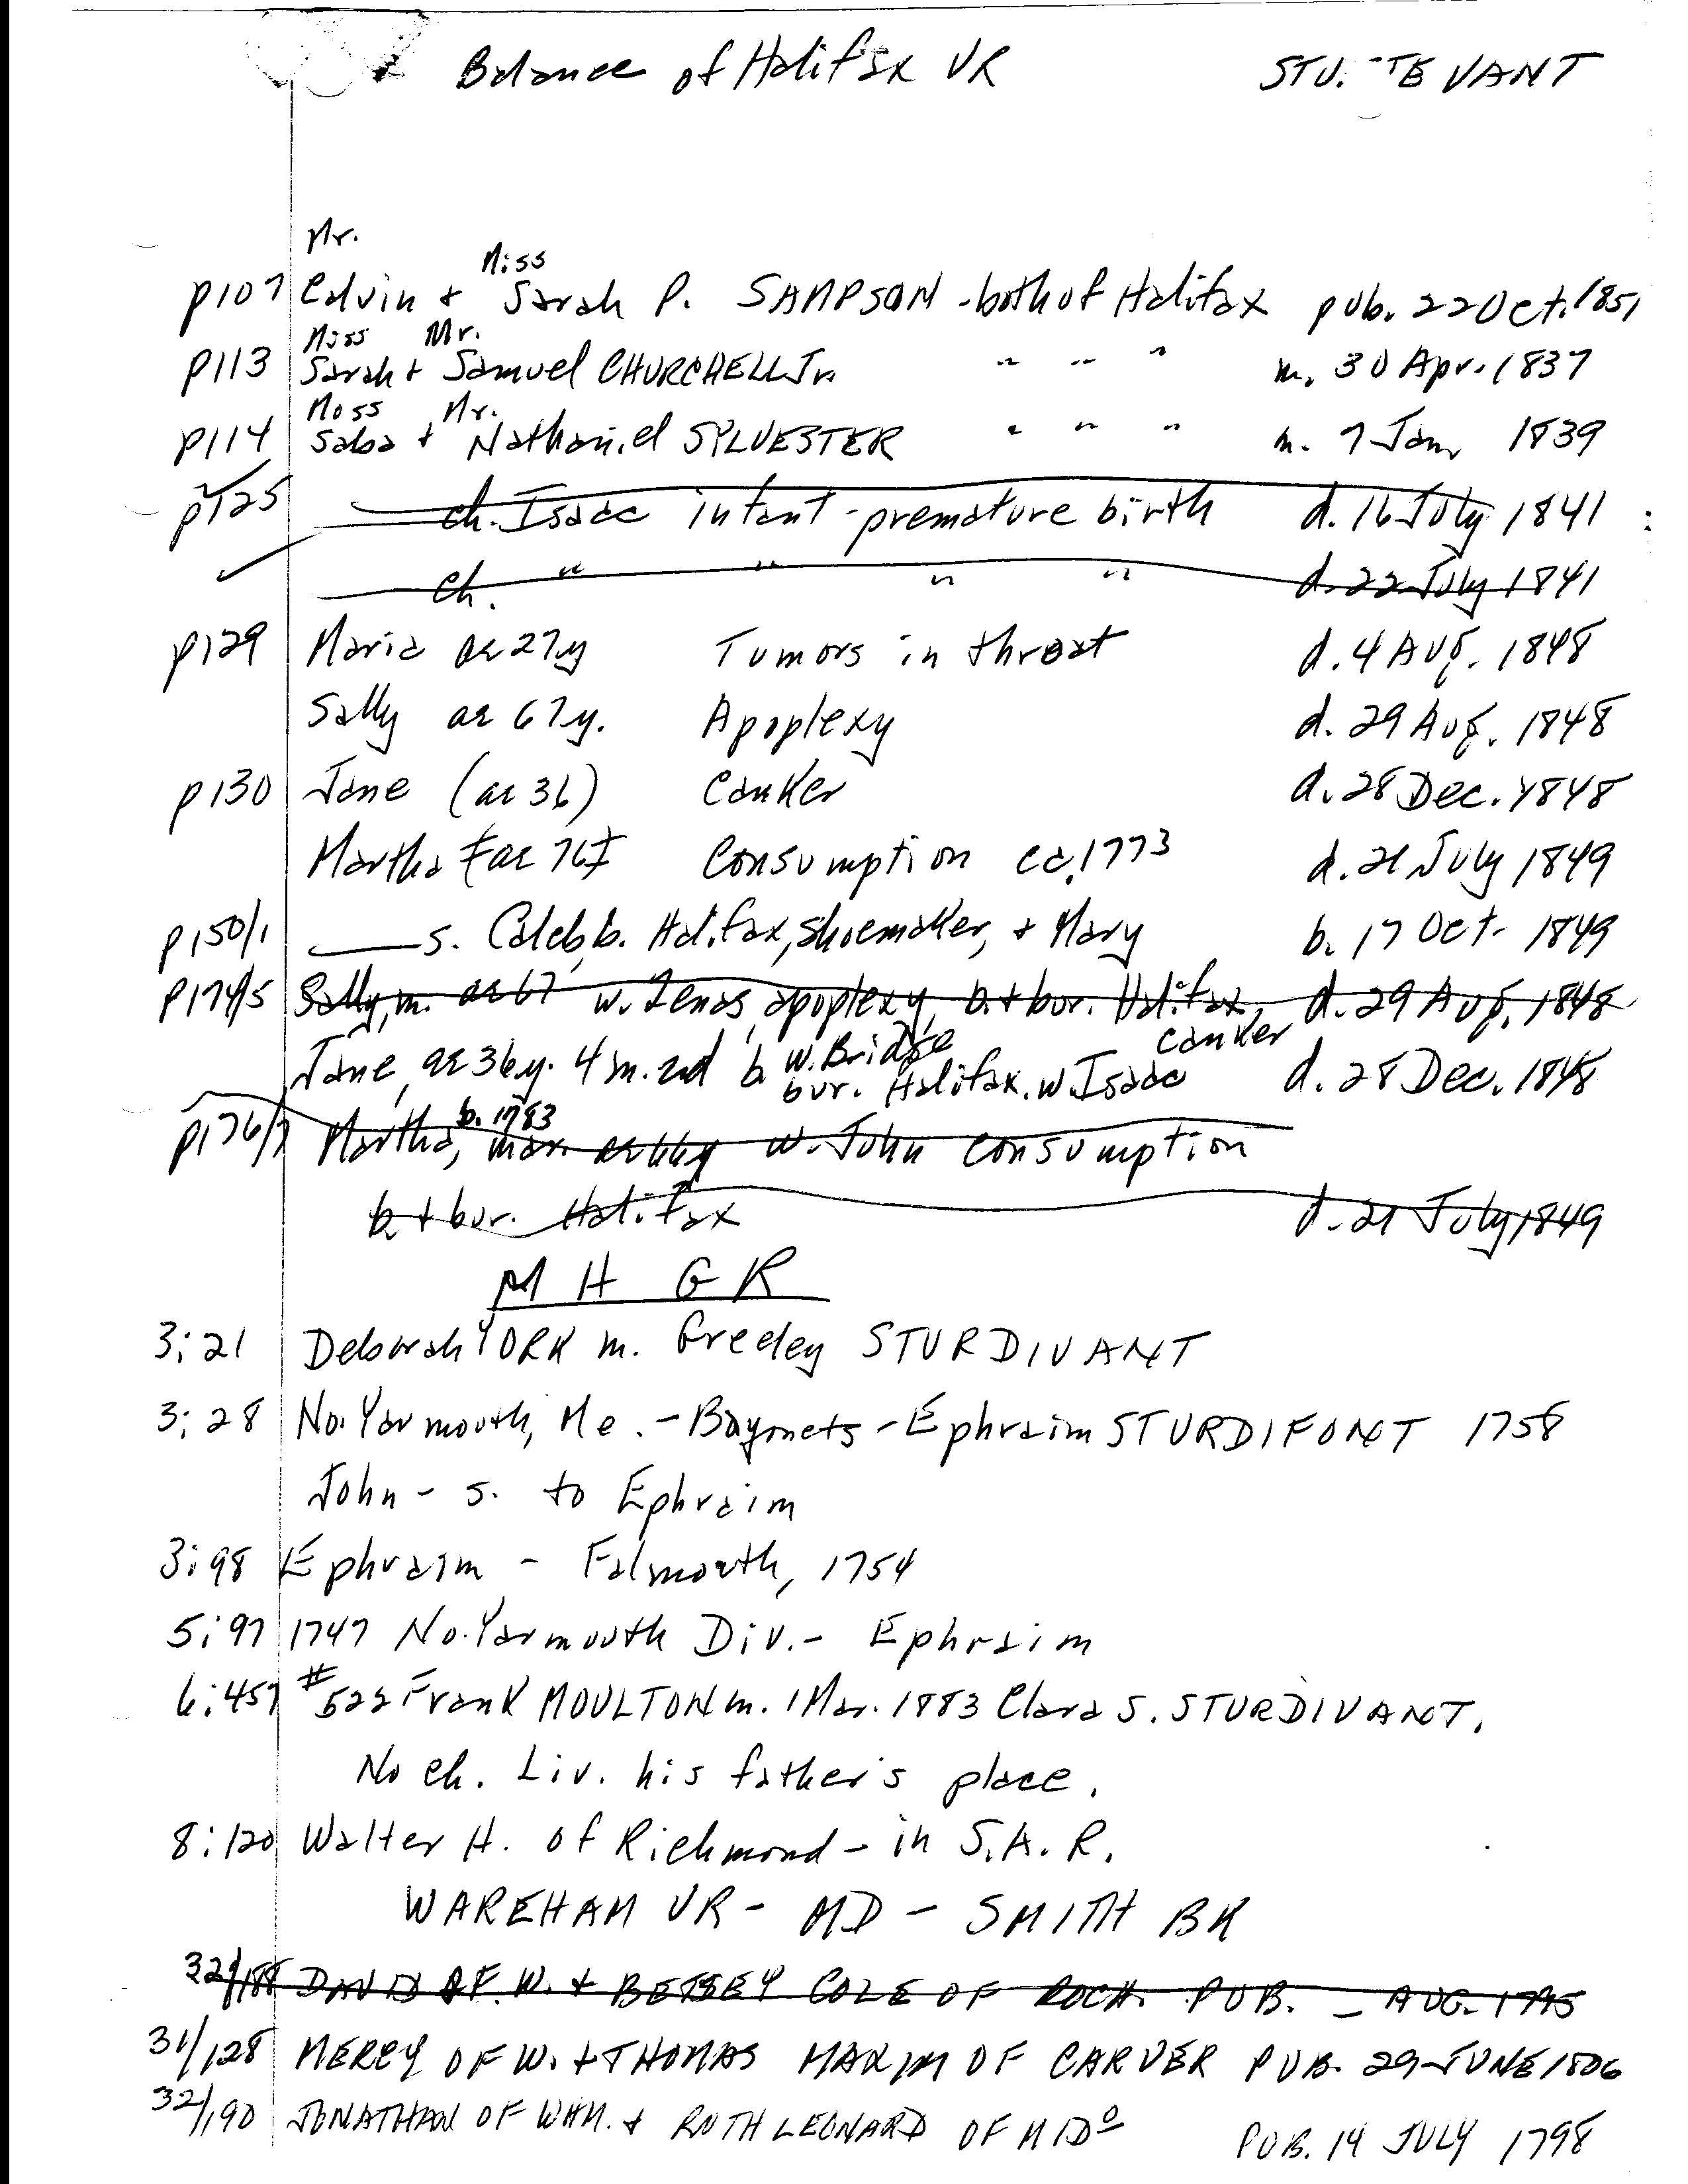 Balance of Halifax VR STU. TEVANT
Mr. Miss
p107 Edvin + Sarah P. SAMPSON - both of Halifax pub. 22 Oct. 1851
Miss Mr.
p113 Sarah + Samuel CHURCHELL Jr. " " " m. 30 Apr. 1837
Moss Mr.
p114 Saba + Nathaniel SYLVESTER " " " m. 7 Jan 1839
p125 ch. Isaac infant - premature birth d. 16 July 1841
ch. " " " " d. 22 July 1841
p129 Maria ae 27y Tumors in throat d. 4 Aug. 1848
Sally ae 67y. Apoplexy d. 29 Aug. 1848
p130 Jane (ae 36) Canker d. 28 Dec. 1848
Martha [ae 76] Consumption ca. 1773 d. 21 July 1849
p150/1 —— s. Caleb, b. Halifax, shoemaker, + Mary b. 17 Oct. 1849
p174/5 Sally, m. ae 67 w. Zenas, apoplexy, b. + bur. Halifax, d. 29 Aug. 1848
Jane, ae 36y. 4 m. 2d b. W. Bridge canker
bur. Halifax. w. Isaac d. 28 Dec. 1848
b. 1783
p176/7 Martha, mar. ae 66y w. John consumption
b. + bur. Halifax d. 21 July 1849
M H G R
3:21 Deborah YORK m. Greeley STURDIVANT
3:28 No. Yarmouth, Me. - Bayonets - Ephraim STURDIFONT 1758
John - s. to Ephraim
3:98 Ephraim - Falmouth, 1754
5:97 1747 No. Yarmouth Div. - Ephraim
6:457 #522 Frank MOULTON m. 1 Mar. 1883 Clara S. STURDIVANT.
No ch. Liv. his father's place.
8:120 Walter H. of Richmond - in S.A.R.
WAREHAM VR - MD - SMITH BK
329/188 DAVID OF W. + BETSEY COLE OF ROCH. PUB. - AUG. 1795
31/128 MERCY OF W. + THOMAS MAXIM OF CARVER PUB. 29 JUNE 1806
32/190 JONATHAN OF WHM. + RUTH LEONARD OF MIDº PUB. 14 JULY 1798